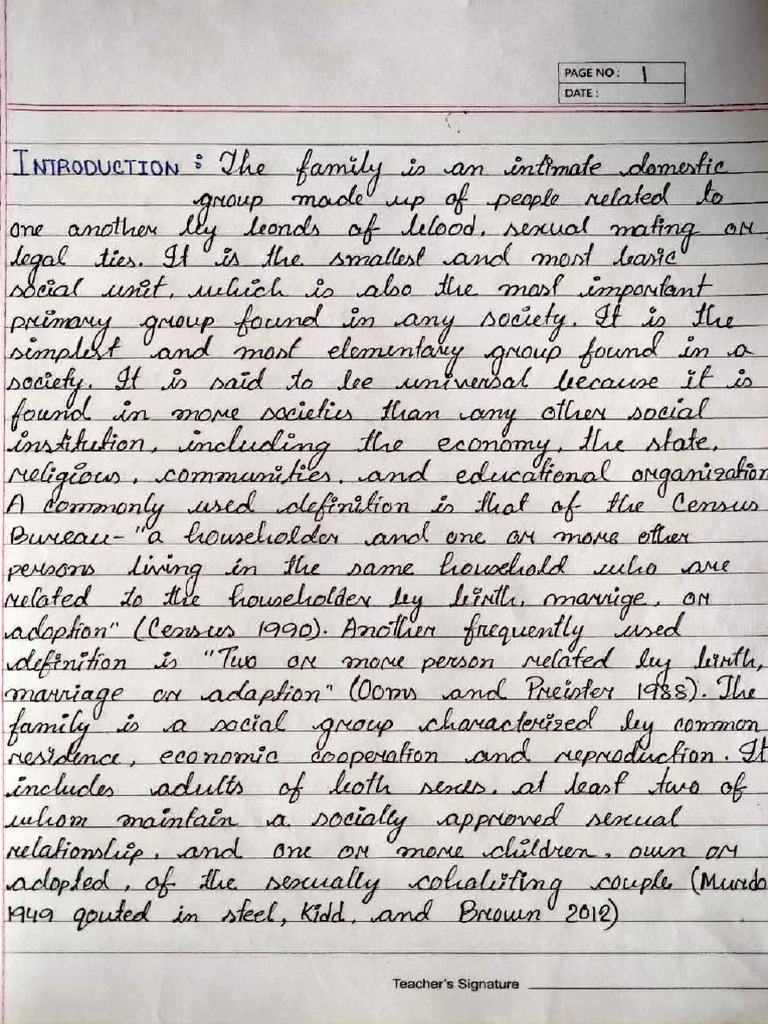 PAGE NO: 1
DATE:
INTRODUCTION : The family is an intimate domestic
group made up of people related to
one another by bonds of blood, sexual mating or
legal ties. It is the smallest and most basic
social unit, which is also the most important
primary group found in any society. It is the
simplest and most elementary group found in a
society. It is said to be universal because it is
found in more societies than any other social
institution, including the economy, the state,
religious, communities, and educational organization
A commonly used definition is that of the Census
Bureau- "a householder and one or more other
persons living in the same household who are
related to the householder by birth, marrige, or
adoption" (Census 1990). Another frequently used
definition is "Two or more person related by birth,
marriage or adaption" (Ooms and Preister 1988). The
family is a social group characterized by common
residence, economic cooperation and reproduction. It
includes adults of both sexes, at least two of
whom maintain a socially approved sexual
relationship, and one or more children, own or
adopted, of the sexually cohabiting couple (Murdo
1949 qouted in steel, Kidd, and Brown 2012)
Teacher's Signature